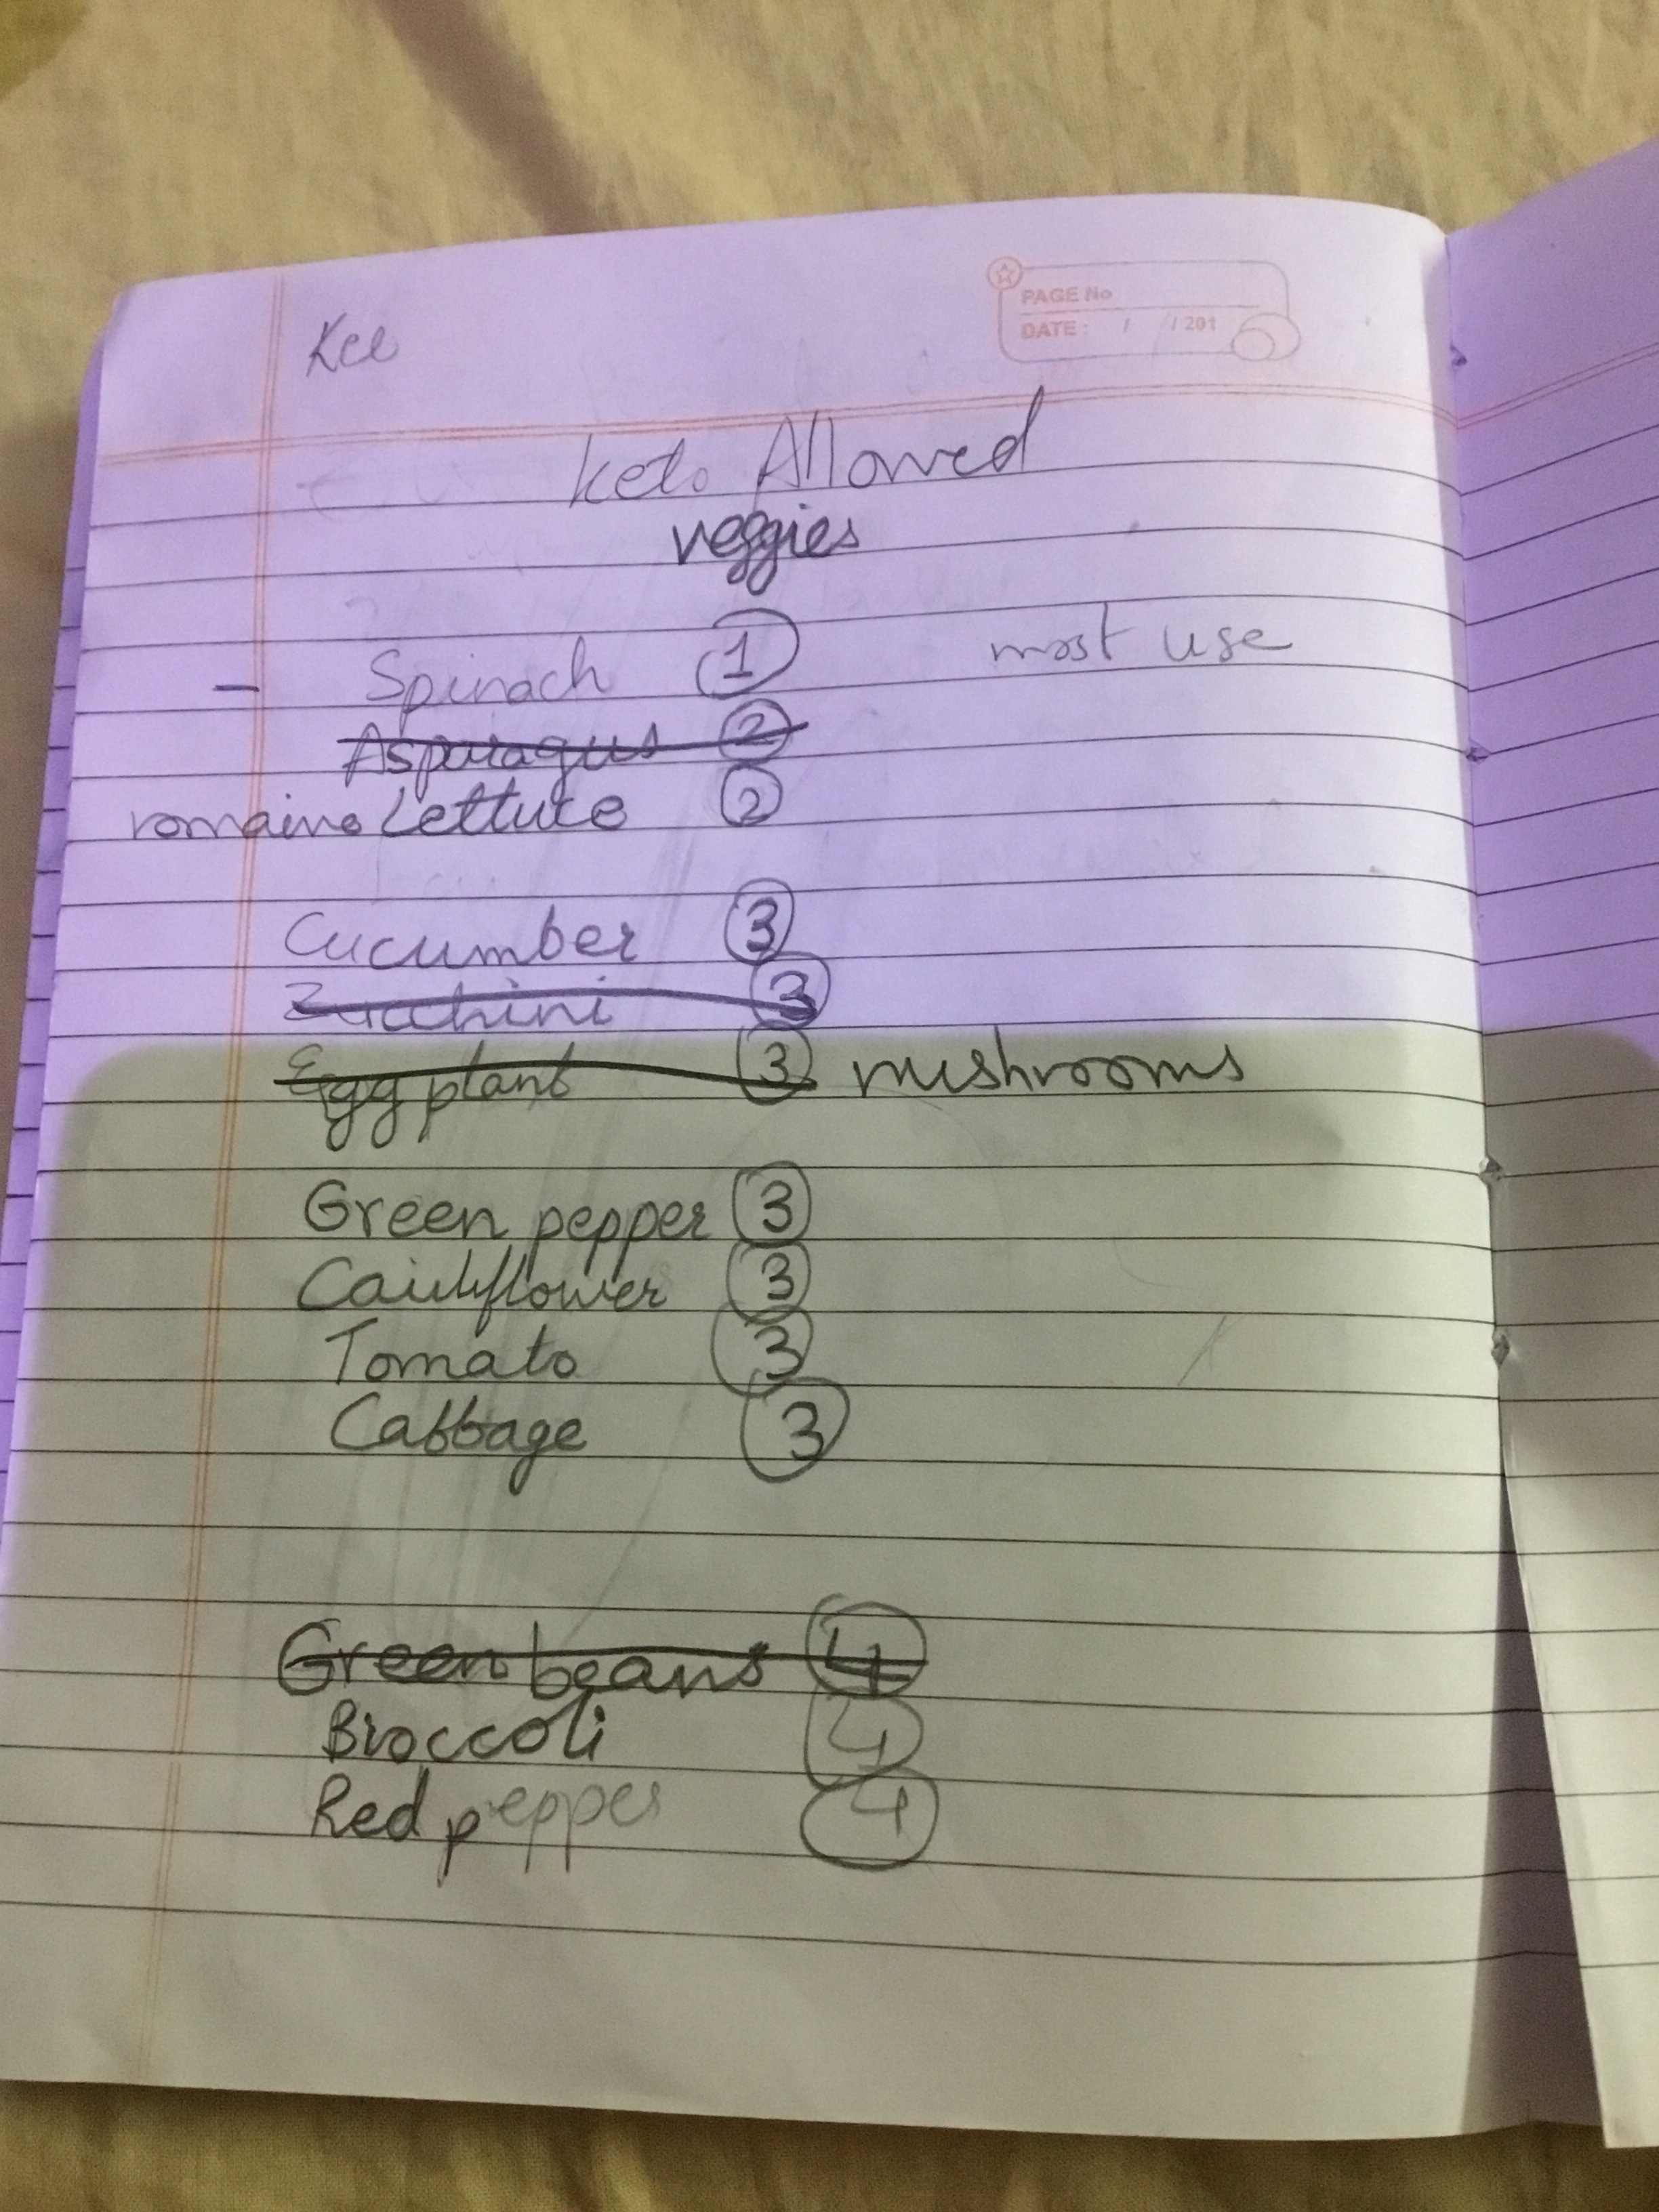 PAGE No
DATE : / / 201
Kee
keto Allowed
veggies
- Spinach 1 most use
Asparagus 2
romaine Lettuce 2
Cucumber 3
Zucchini 3
Egg plant 3 mushrooms
Green pepper 3
Cauliflower 3
Tomato 3
Cabbage 3
Green beans 4
Broccoli 4
Red pepper 4